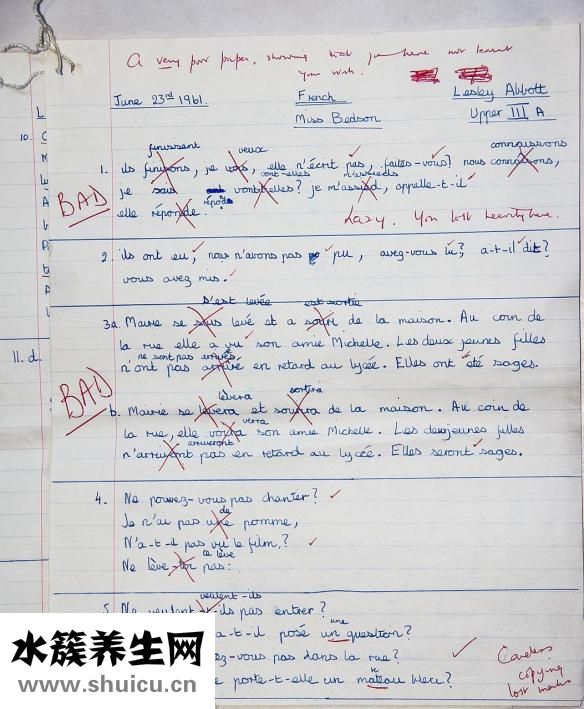 A very poor paper, showing that you have not learnt
your work.
June 23rd 1961.
French
Lesley Abbott
Miss Bedson
Upper III A
finissent
veux
connaissons
1. ils finissons, je vous, elle n'écrit pas, faites-vous? nous connaisons,
vont-elles
m'assieds
je sais vont elles? je m'assied, appelle-t-il
BAD
répond
elle réponde.
Lazy. You lost heavily here.
2. ils ont eu, nous n'avons pas pu, avez-vous lu? a-t-il dit?
vous avez mis.
s'est levée
est sortie
3a. Mairie se suis levé et a de la maison. Au coin de
la rue elle a vu son amie Michelle. Les deux jeunes filles
ne sont pas arrivées
n'ont pas arrivé en retard au lycée. Elles ont été sages.
BAD
lèvera
sortira
b. Mairie se levera et de la maison. Au coin de
verra
la rue, elle voira son amie Michelle. Les deux jeunes filles
arriveront
pas en retard au lycée. Elles seront sages.
4. Ne pouvez-vous pas chanter?
de
Je n'ai pas une pomme,
N'a-t-il pas vu le film?
te lève
Ne lève-toi pas.
veulent-ils
5. Ne veulent-t-ils pas entrer?
une
a-t-il posé un question?
ez-vous pas dans la rue?
porte-t-elle un mateau bleu?
Careless
copying
lost marks
L
10.
11. d.
水簇养生网
www.shuicu.cn